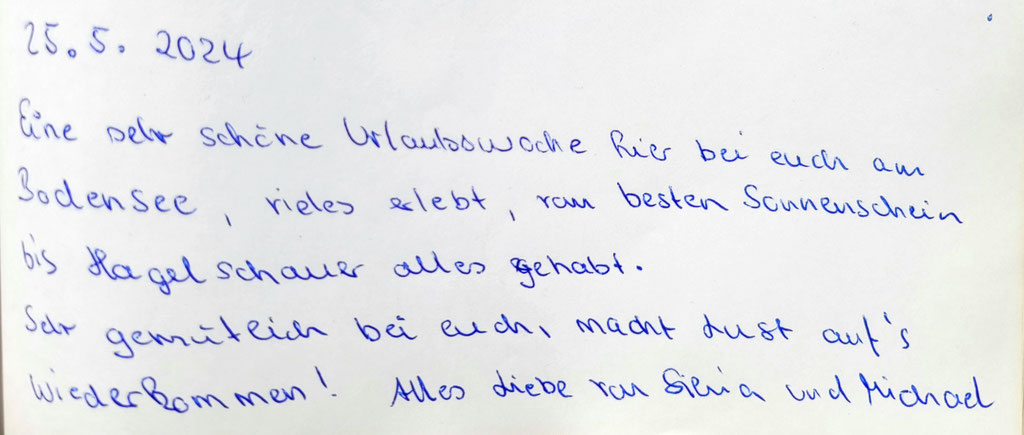 25.5. 2024
Eine sehr schöne Urlaubswoche hier bei euch am
Bodensee, vieles erlebt, von besten Sonnenschein
bis Hagelschauer alles gehabt.
Sehr gemütlich bei euch, macht Lust auf's
Wiederkommen! Alles Liebe von Silvia und Michael